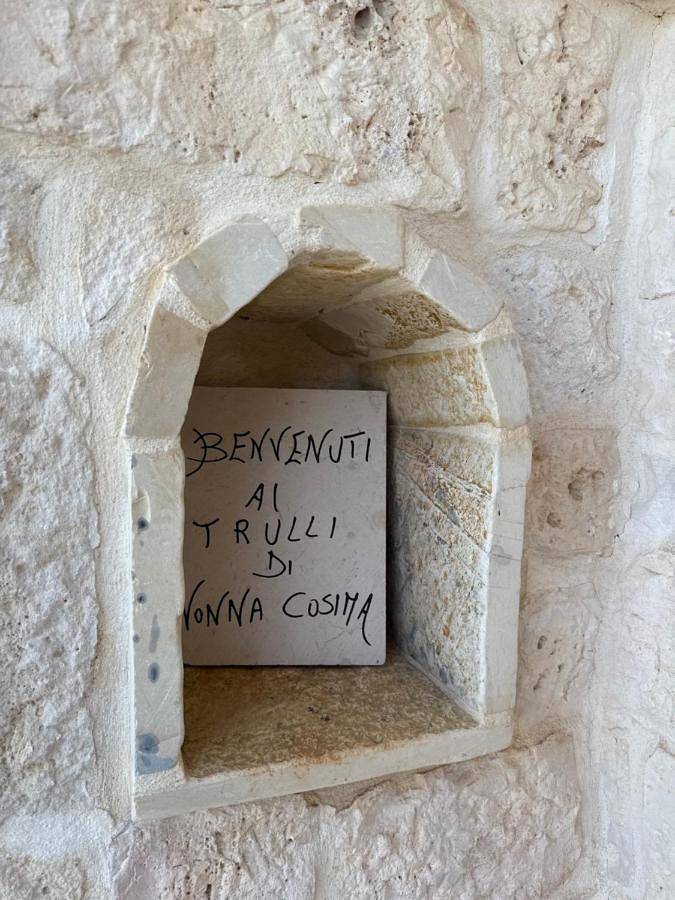 BENVENUTI
AI
TRULLI
DI
NONNA COSIMA